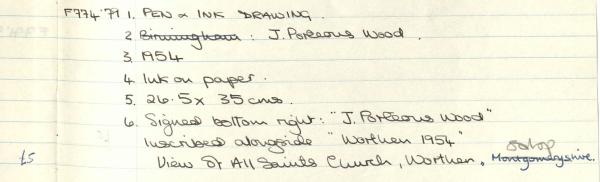 F774'79 1. PEN & INK DRAWING.
2. Birmingham: J. Porteous Wood.
3. 1954
4. Ink on paper.
5. 26.5 x 35 cms.
6. Signed bottom right: "J. Porteous Wood"
Inscribed alongside "Worthen 1954"
Salop
£5 View of All Saints Church, Worthen, Montgomeryshire.